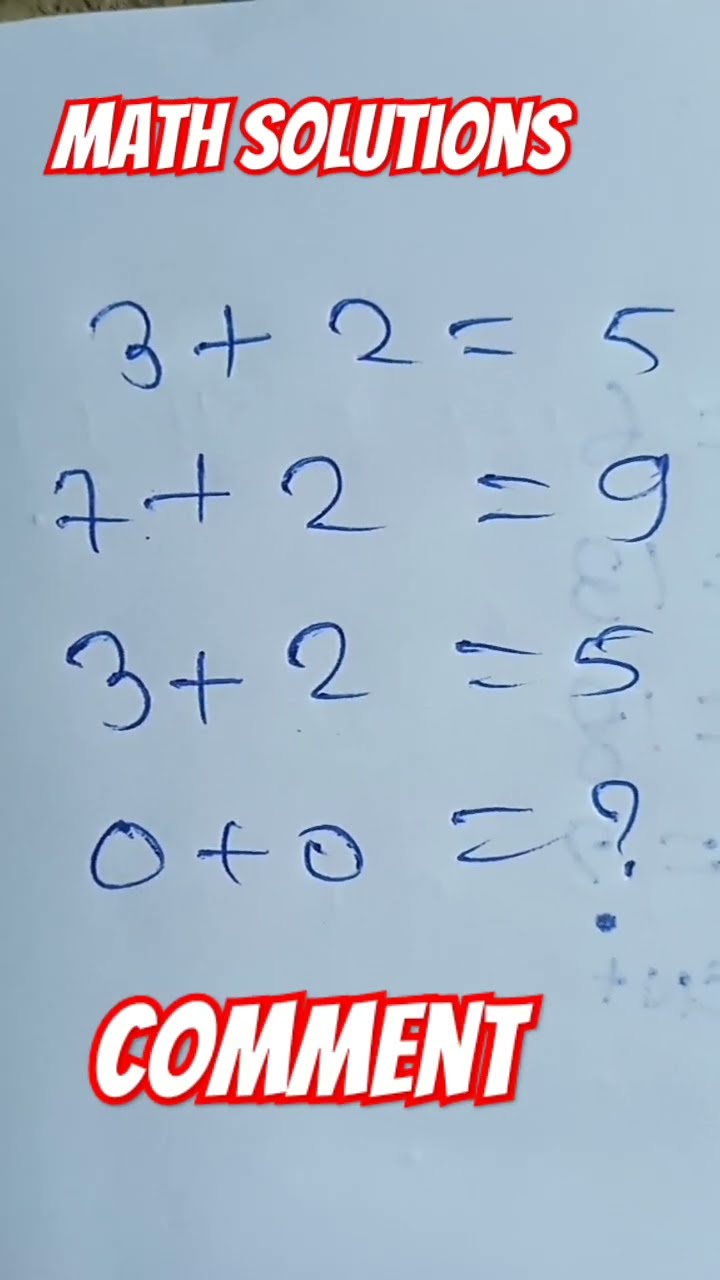 MATH SOLUTIONS
3 + 2 = 5
7 + 2 = 9
3 + 2 = 5
0 + 0 = ?
COMMENT